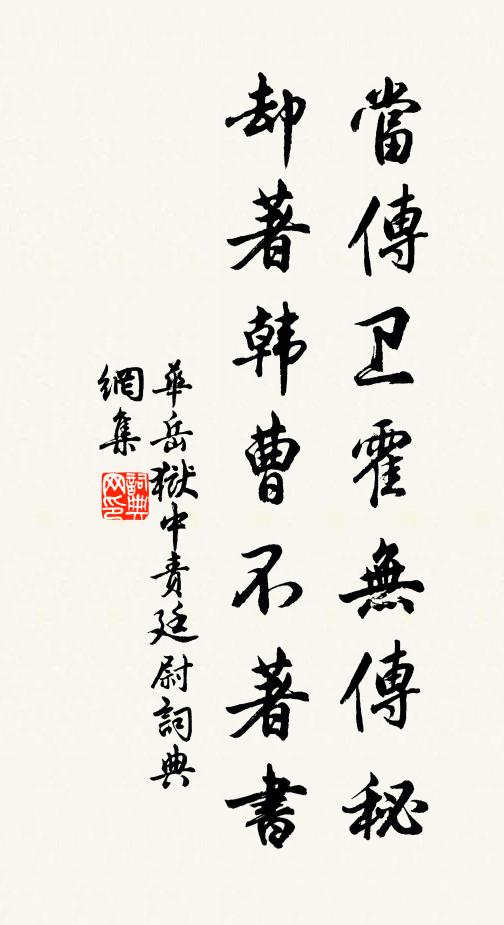 當傳卫霍無傳秘
却著韩曹不著書
華岳獄中責廷尉詞典
網集
詞典
网印